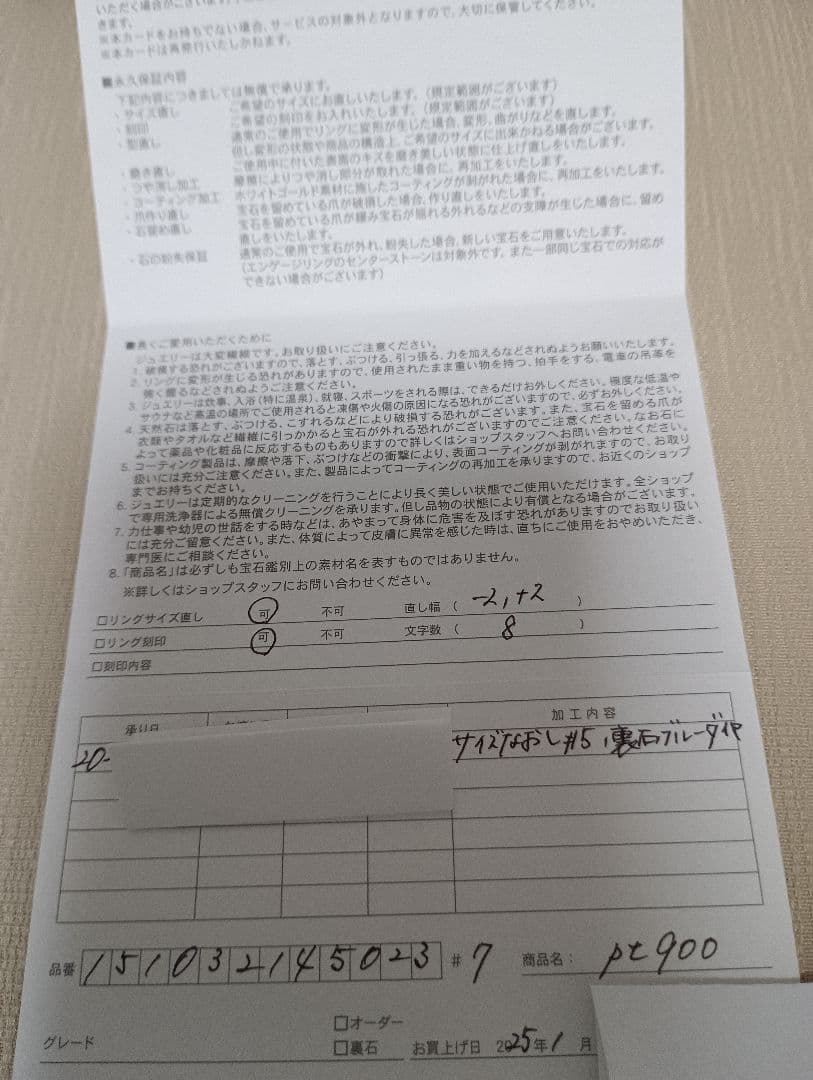 きます。
※本カードをお持ちでない場合、サービスの対象外となりますので、大切に保管してください。
※本カードは再発行いたしかねます。
■永久保証内容
下記内容につきましては無償で承ります。
・サイズ直し ご希望のサイズにお直しいたします。(規定範囲がございます)
・刻印 ご希望の刻印をお入れいたします。(規定範囲がございます)
・型直し 通常のご使用でリングに変形が生じた場合、変形、曲がりなどを直します。
但し変形の状態や商品の構造上、ご希望のサイズに出来かねる場合がございます。
・磨き直し ご使用中に付いた表面のキズを磨き美しい状態に仕上げ直しをいたします。
・つや消し加工 摩擦によりつや消し部分が取れた場合に、再加工をいたします。
・コーティング加工 ホワイトゴールド素材に施したコーティングが剥がれた場合に、再加工をいたします。
・爪作り直し 宝石を留めている爪が破損した場合、作り直しをいたします。
・石留め直し 宝石を留めている爪が緩み宝石が揺れる外れるなどの支障が生じた場合に、留め
直しをいたします。
・石の紛失保証 通常のご使用で宝石が外れ、紛失した場合、新しい宝石をご用意いたします。
(エンゲージリングのセンターストーンは対象外です。また一部同じ宝石での対応が
できない場合がございます)
■長くご愛用いただくために
ジュエリーは大変繊細です。お取り扱いにご注意ください。
1. 破損する恐れがございますので、落とす、ぶつける、引っ張る、力を加えるなどされぬようお願いいたします。
2. リングに変形が生じる恐れがありますので、使用されたまま重い物を持つ、拍手をする、電車の吊革を
強く握るなどされぬようご注意ください。
3. ジュエリーは炊事、入浴(特に温泉)、就寝、スポーツをされる際は、できるだけお外しください。極度な低温や
サウナなど高温の場所でご使用されると凍傷や火傷の原因になる恐れがございますので、必ずお外しください。
4. 天然石は落とす、ぶつける、こすれるなどにより破損する恐れがございます。また、宝石を留める爪が
衣類やタオルなど繊維に引っかかると宝石が外れる恐れがございますのでご注意ください。なお石に
よって薬品や化粧品に反応するものもありますので詳しくはショップスタッフへお問い合わせください。
5. コーティング製品は、摩擦や落下、ぶつけなどの衝撃により、表面コーティングが剥がれますので、お取り
扱いには充分ご注意ください。また、製品によってコーティングの再加工を承りますので、お近くのショップ
までお持ちください。
6. ジュエリーは定期的なクリーニングを行うことにより長く美しい状態でご使用いただけます。全ショップ
で専用洗浄器による無償クリーニングを承ります。但し品物の状態により有償となる場合がございます。
7. 力仕事や幼児の世話をする時などは、あやまって身体に危害を及ぼす恐れがありますのでお取り扱い
には充分ご留意ください。また、体質によって皮膚に異常を感じた時は、直ちにご使用をおやめいただき、
専門医にご相談ください。
8.「商品名」は必ずしも宝石鑑別上の素材名を表すものではありません。
※詳しくはショップスタッフにお問い合わせください。
□リングサイズ直し 可 不可 直し幅 ( -2,+2 )
□リング刻印 可 不可 文字数 ( 8 )
□刻印内容
承り日 加工内容
20- サイズなおし#5、裏石ブルーダイヤ
品番 151032145023 # 7 商品名: pt900
グレード □オーダー
□裏石 お買上げ日 2025年1月